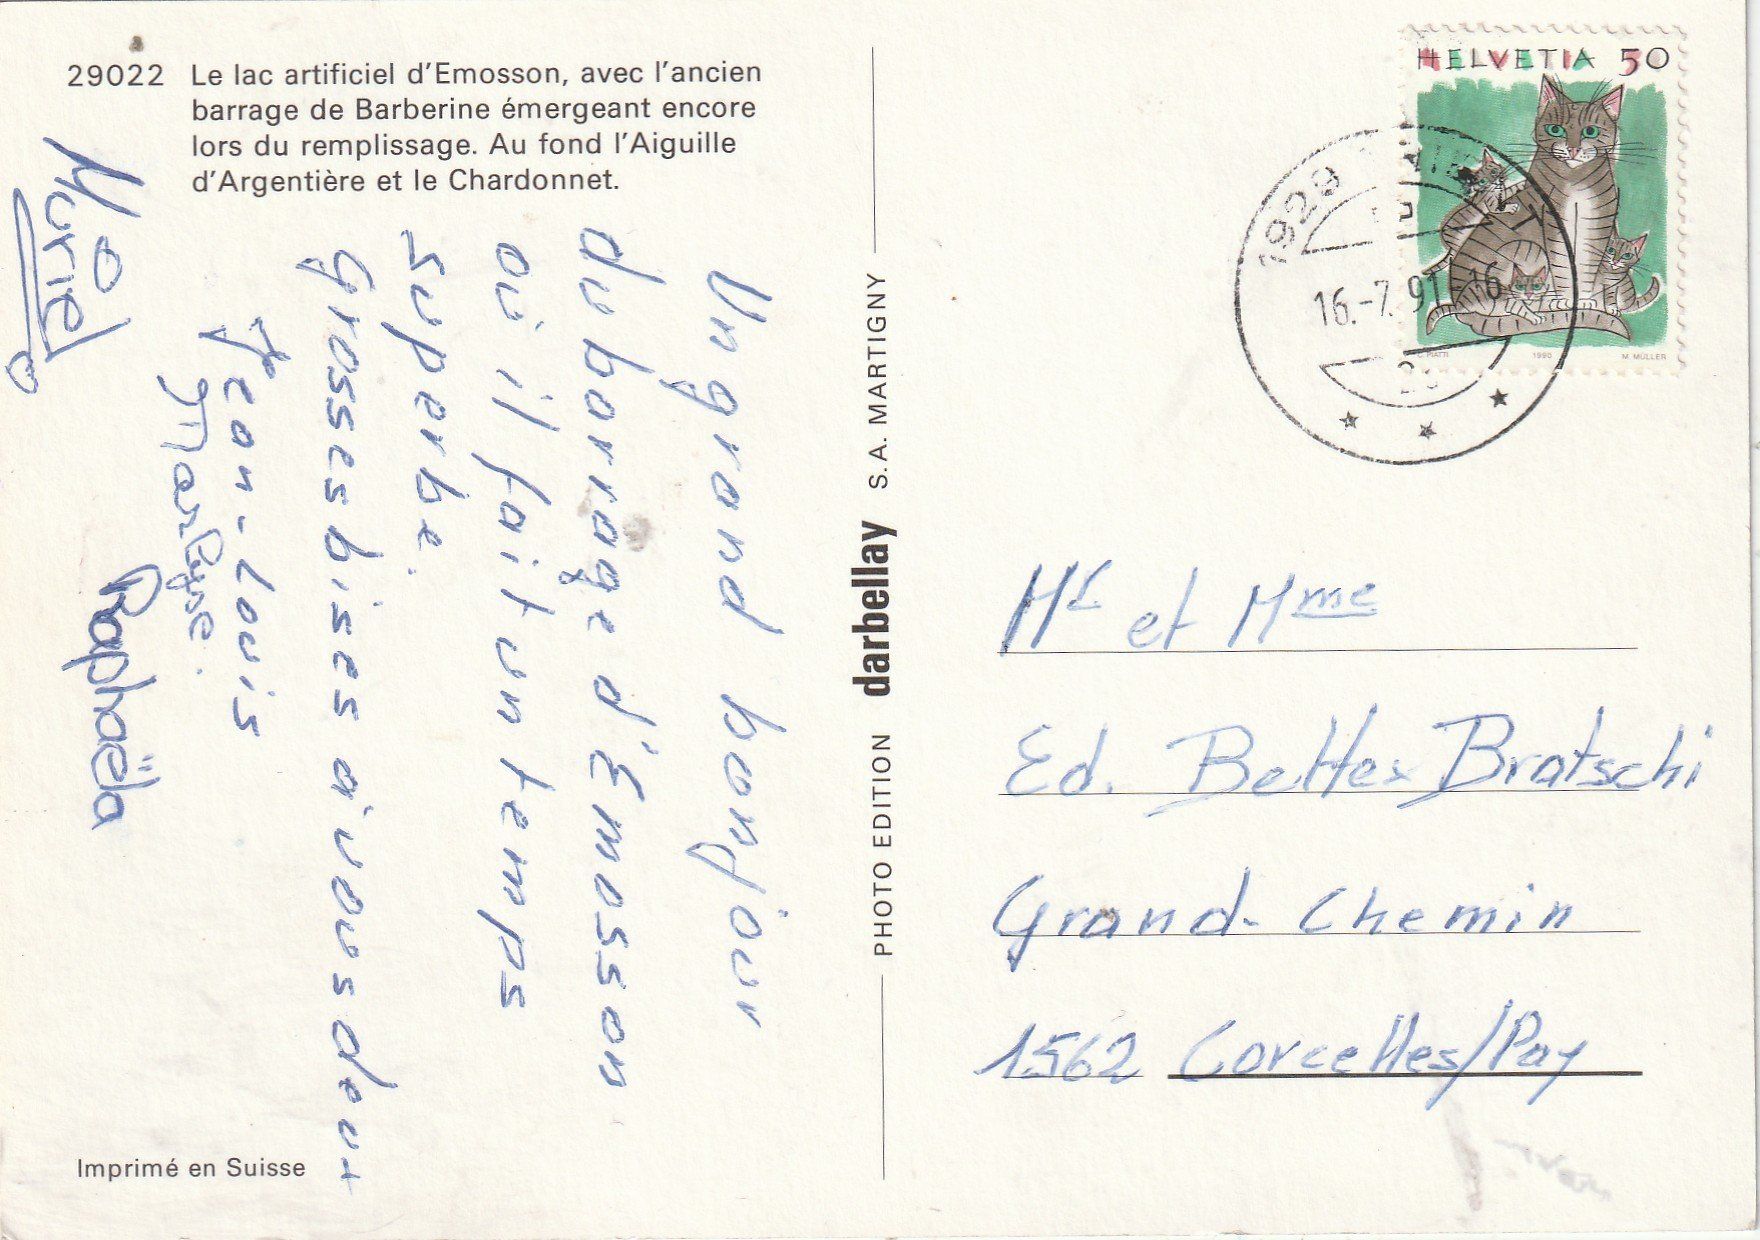 29022 Le lac artificiel d'Emosson, avec l'ancien
barrage de Barberine émergeant encore
lors du remplissage. Au fond l'Aiguille
d'Argentière et le Chardonnet.
Un grand bonjour
du barrage d'Emosson
où il fait un temps
superbe.
Grosses bises à vous deux
Jean-Louis
Marlyse.
Raphaëla
Muriel
Imprimé en Suisse
PHOTO EDITION darbellay S.A. MARTIGNY
HELVETIA 50
C. PIATTI 1990 M. MÜLLER
1929
16.-7.91 16
Mr et Mme
Ed. Bettex Bratschi
Grand-Chemin
1562 Corcelles/Pay